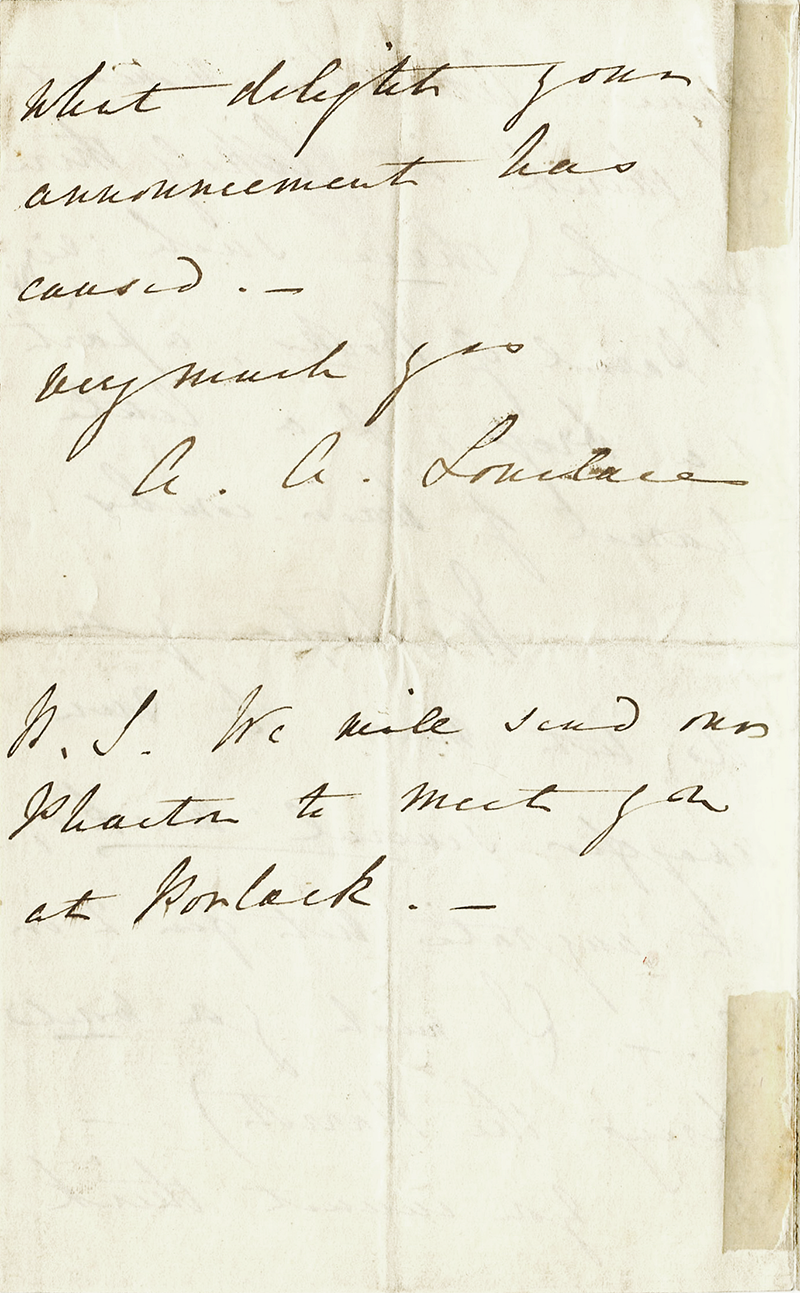 what delight your
announcement has
caused . —
very much yrs
A . A . Lovelace
P. S. We will send our
Phaeton to meet you
at Porlock . —